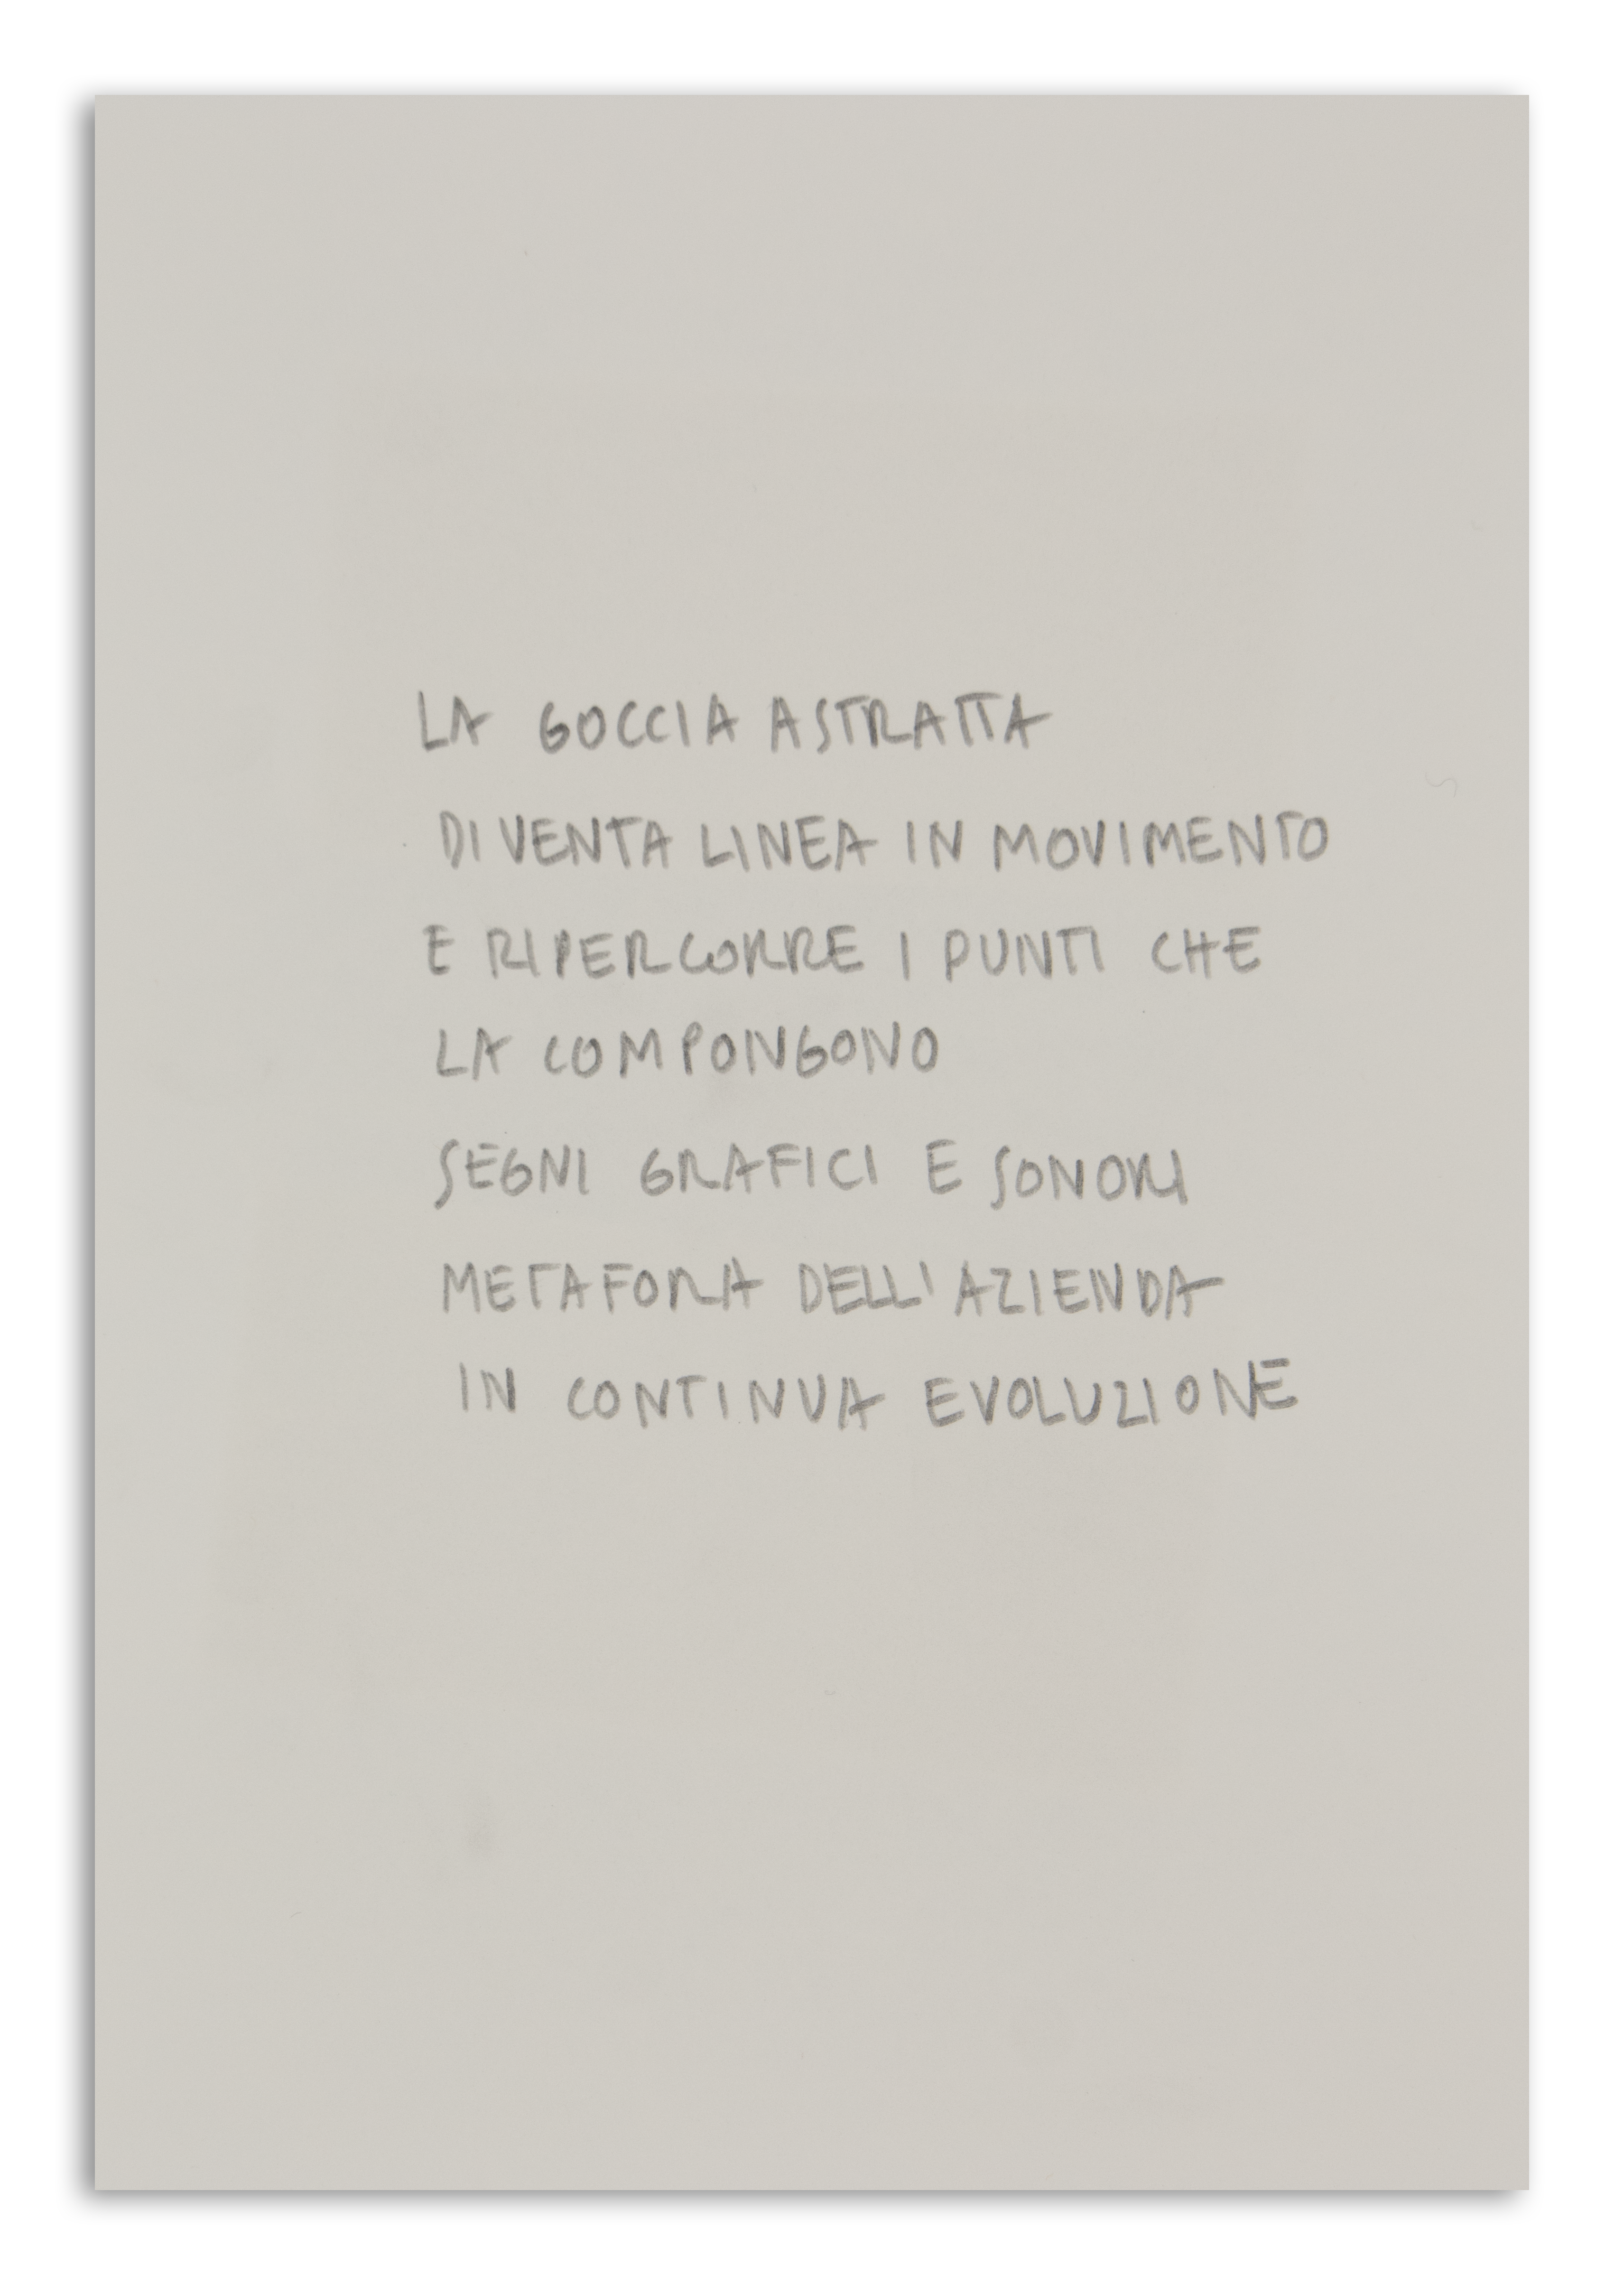 LA GOCCIA ASTRATTA
DIVENTA LINEA IN MOVIMENTO
E RIPERCORRE I PUNTI CHE
LA COMPONGONO
SEGNI GRAFICI E SONORI
METAFORA DELL'AZIENDA
IN CONTINUA EVOLUZIONE